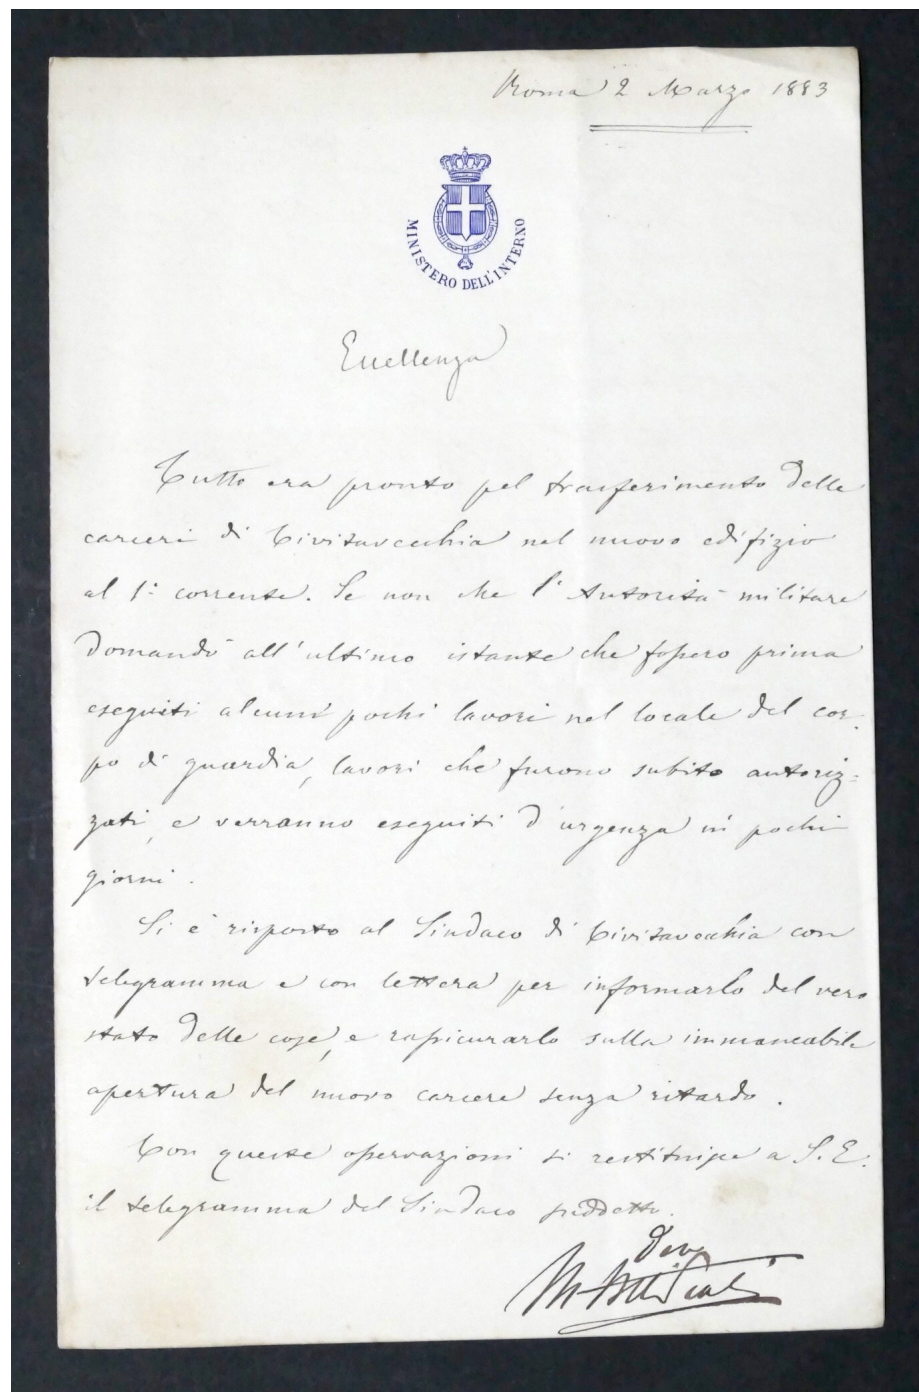 Roma 2 Marzo 1883
MINISTERO DELL'INTERNO
Eccellenza
Tutto era pronto pel trasferimento delle
carceri di Civitavecchia nel nuovo edifizio
al 1º corrente. Se non che l'Autorità militare
domandò all'ultimo istante che fossero prima
eseguiti alcuni pochi lavori nel locale del cor-
po di guardia, lavori che furono subito autoriz=
zati, e verranno eseguiti d'urgenza in pochi
giorni.
Si è risposto al Sindaco di Civitavecchia con
telegramma e con lettera per informarlo del vero
stato delle cose, e rassicurarlo sulla immancabile
apertura del nuovo carcere senza ritardo.
Con queste osservazioni si restituisce a S. E.
il telegramma del Sindaco suddetto.
Dev